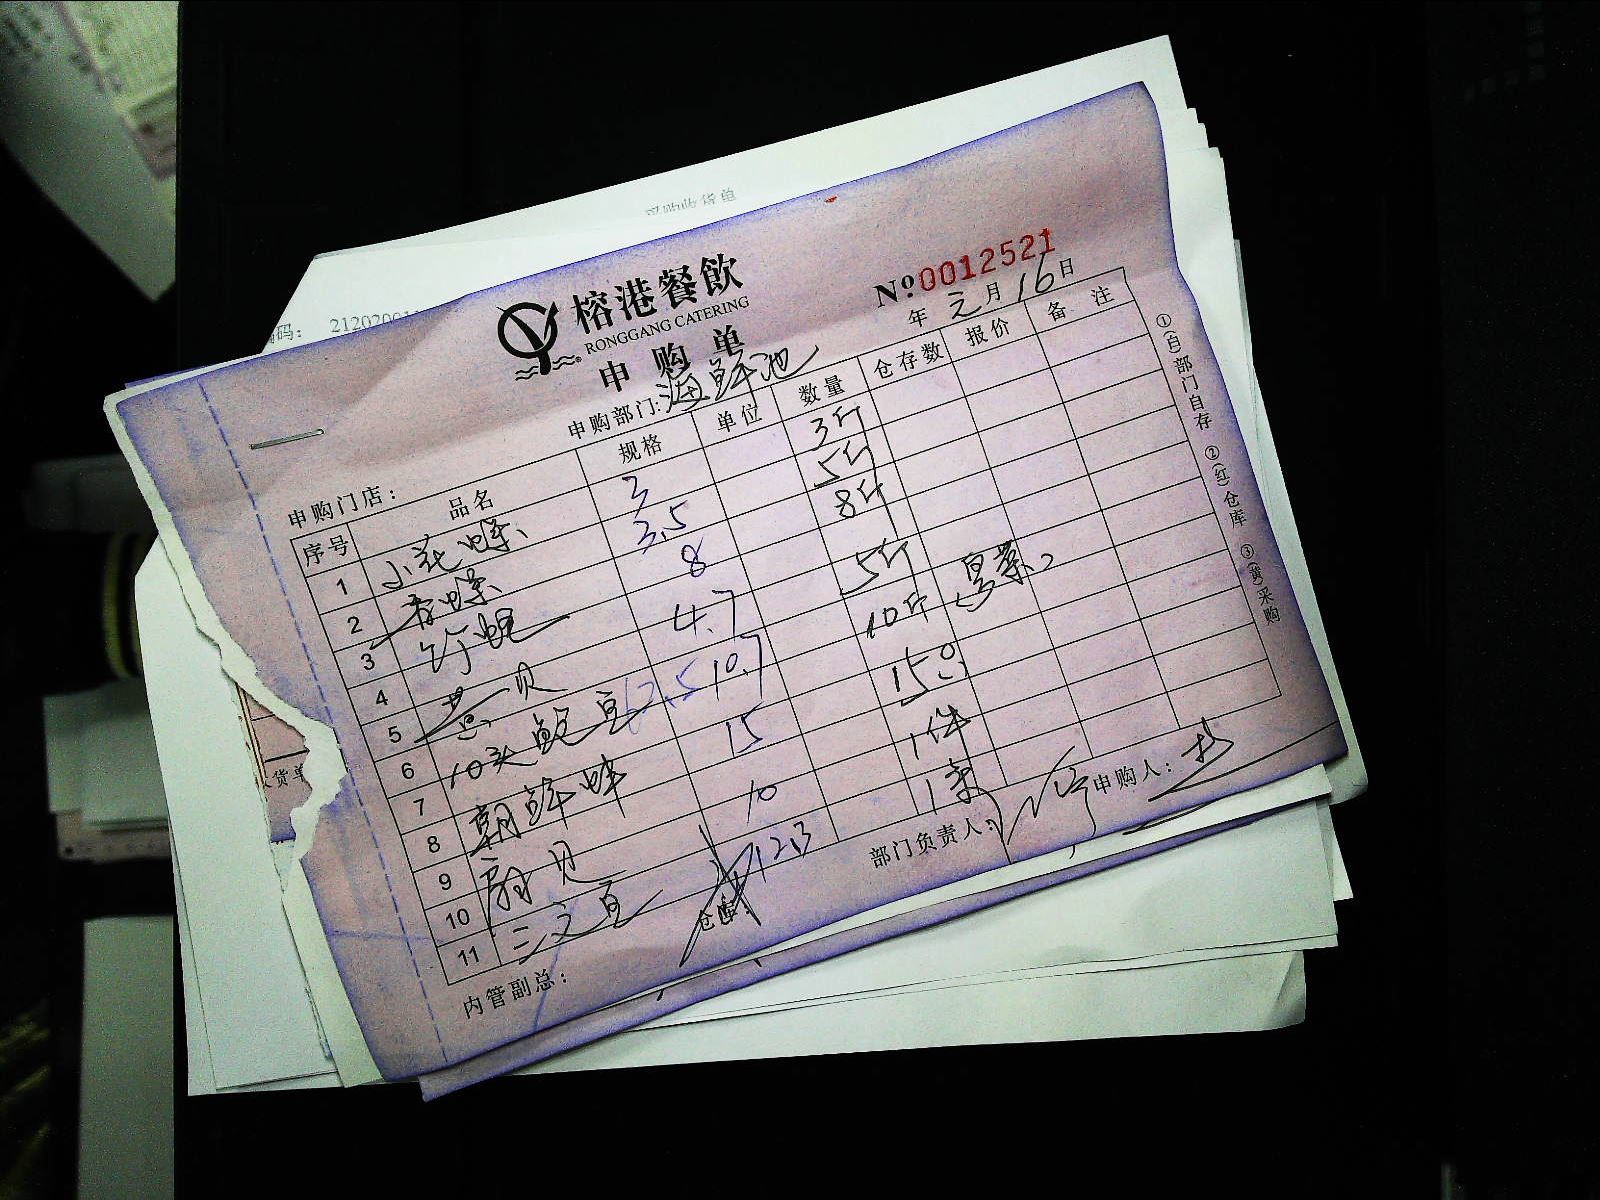 采购收货单
编码： 2120200
榕港餐飲
RONGGANG CATERING
申购单
№ 0012521
年 元 月 16 日
申购门店： 申购部门: 海鲜池
序号 品名 规格 单位 数量 仓存数 报价 备 注
1 小花螺 3 3斤
2 香螺 3.5 5斤
3 竹蛏 8 8斤
4
5 贝 4.7 5斤
6 10头鲍鱼 62.5 10.7 10斤
7
8 朝鲜蚌 15 150
9
10 扇贝 10 1件
11 三文鱼 123 1条
内管副总： 仓库： 部门负责人： 申购人：
①(白)部门自存 ②(红)仓库 ③(黄)采购
货单